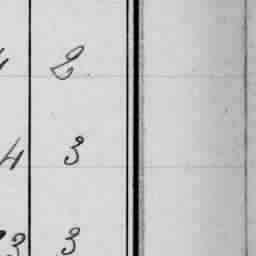 2
4 3
3 3